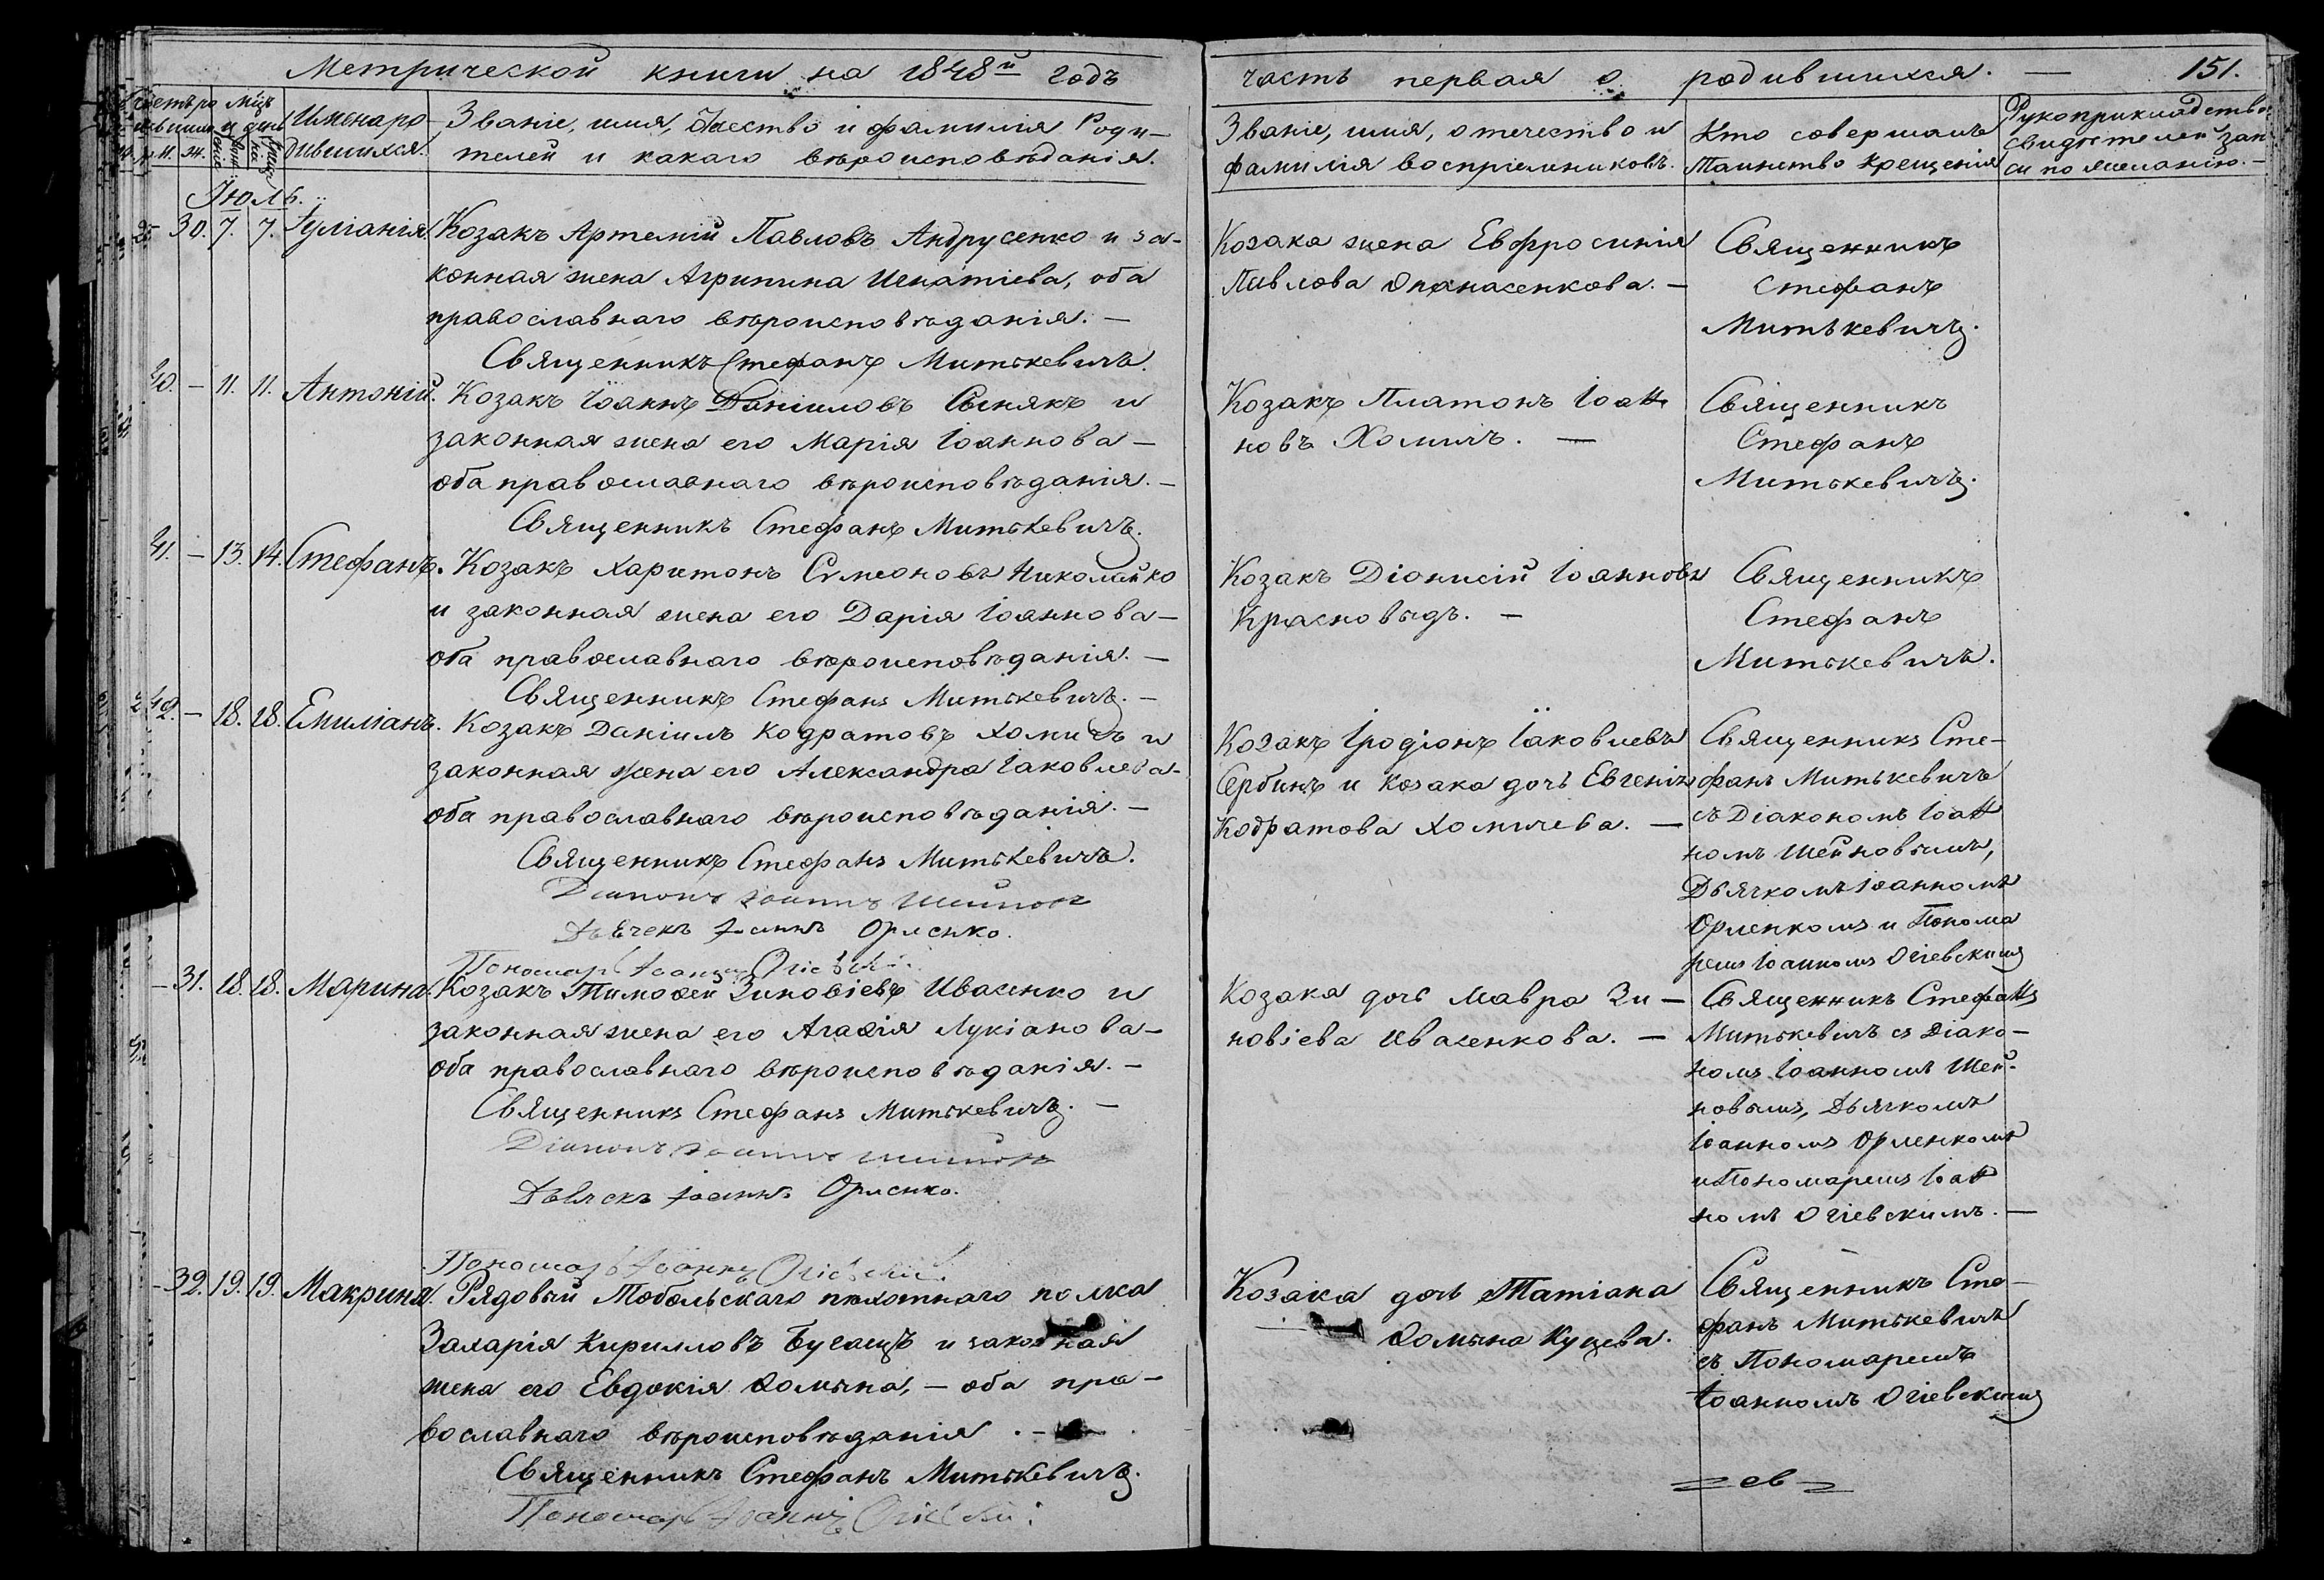 Метрической книги на 1848й годъ
часть первая о родившихся. — 151.
Счетъ ро Мѣсц
и день
Имена ро-
дившихся.
Званіе, имя, отчество и фамилія Роди-
телей и какаго вѣроисповѣданія.
Званіе, имя, отечество и
фамилія воспріемниковъ.
Кто совершалъ
Таинство крещенія
Рукоприкладство
свидѣтелей запи
си по желанію. —
Іюль.
30. 7. 7. Іуліанія. Козакъ Артемій Павловъ Андрусенко и за-
конная жена Агрипина Игнатіева, оба
православнаго вѣроисповѣданія. —
Священникъ Стефанъ Митькевичъ.
Козака жена Евфросинія
Павлова Опанасенкова. —
Священникъ
Стефанъ
Митькевичъ.
40. — 11. 11. Антоній. Козакъ Іоаннъ Даніиловъ Сыпякъ и
законная жена его Марія Іоаннова —
оба православнаго вѣроисповѣданія. —
Священникъ Стефанъ Митькевичъ.
Козакъ Платонъ Іоан
новъ Хомичъ. —
Священникъ
Стефанъ
Митькевичъ.
41. — 13. 14. Стефанъ. Козакъ Харитонъ Симеоновъ Николайко
и законная жена его Дарія Іоаннова —
оба православнаго вѣроисповѣданія. —
Священникъ Стефанъ Митькевичъ. —
Козакъ Діонисій Іоанновъ
Красновѣдъ. —
Священникъ
Стефанъ
Митькевичъ.
42. — 18. 18. Емиліанъ. Козакъ Даніилъ Кодратовъ Хомичъ и
законная жена его Александра Іаковлева -
оба православнаго вѣроисповѣданія. —
Священникъ Стефанъ Митькевичъ.
Діаконъ Іоаннъ Шейновъ
Дьячекъ Іоаннъ Орленко.
Пономарь Іоаннъ Огіевскій.
Козакъ Іродіонъ Іаковлевъ
Сербинъ и козака дочь Евгенія
Кодратова Хомичева. —
Священникъ Сте-
фанъ Митькевичъ
съ Діакономъ Іоан
номъ Шейновымъ,
Дьячкомъ Іоанномъ
Орленкомъ и Понома
ремъ Іоанномъ Огіевскимъ
— 31. 18. 18. Марина. Козакъ Тимофей Зиновіевъ Ивасенко и
законная жена его Агафія Лукіанова —
оба православнаго вѣроисповѣданія. —
Священникъ Стефанъ Митькевичъ. —
Діаконъ Іоаннъ Шейновъ
Дьячекъ Іоаннъ Орленко.
Пономарь Іоаннъ Огіевскій.
Козака дочь Мавра Зи —
новіева Ивасенкова. —
Священникъ Стефанъ
Митькевичъ съ Діако —
номъ Іоанномъ Шей-
новымъ, Дьячкомъ
Іоанномъ Орленкомъ
и Пономаремъ Іоан
номъ Огіевскимъ. —
— 32. 19. 19. Макрина. Рядовый Тобольскаго пѣхотнаго полка
Захарія Кирилловъ Бусаецъ и законная
жена его Евдокія Фомына, — оба пра —
вославнаго вѣроисповѣданія. —
Священникъ Стефанъ Митькевичъ.
Пономарь Іоаннъ Огіевскій.
Козака дочь Татіана
Фомына Куцева.
Священникъ Сте —
фанъ Митькевичъ
съ Пономаремъ
Іоанномъ Огіевскимъ